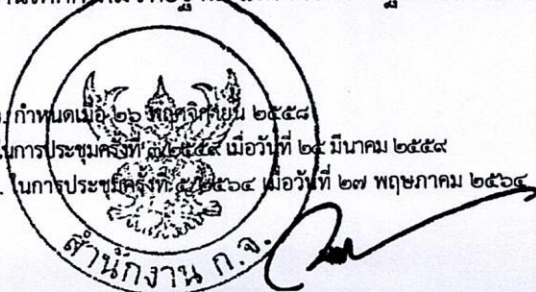 . กำหนดเมื่อ ๒๖ พฤศจิกายน ๒๕๕๘
ในการประชุมครั้งที่ ๓/๒๕๕๙ เมื่อวันที่ ๒๔ มีนาคม ๒๕๕๙
. ในการประชุมครั้งที่ ๕/๒๕๖๔ เมื่อวันที่ ๒๗ พฤษภาคม ๒๕๖๔
สำนักงาน ก.จ.